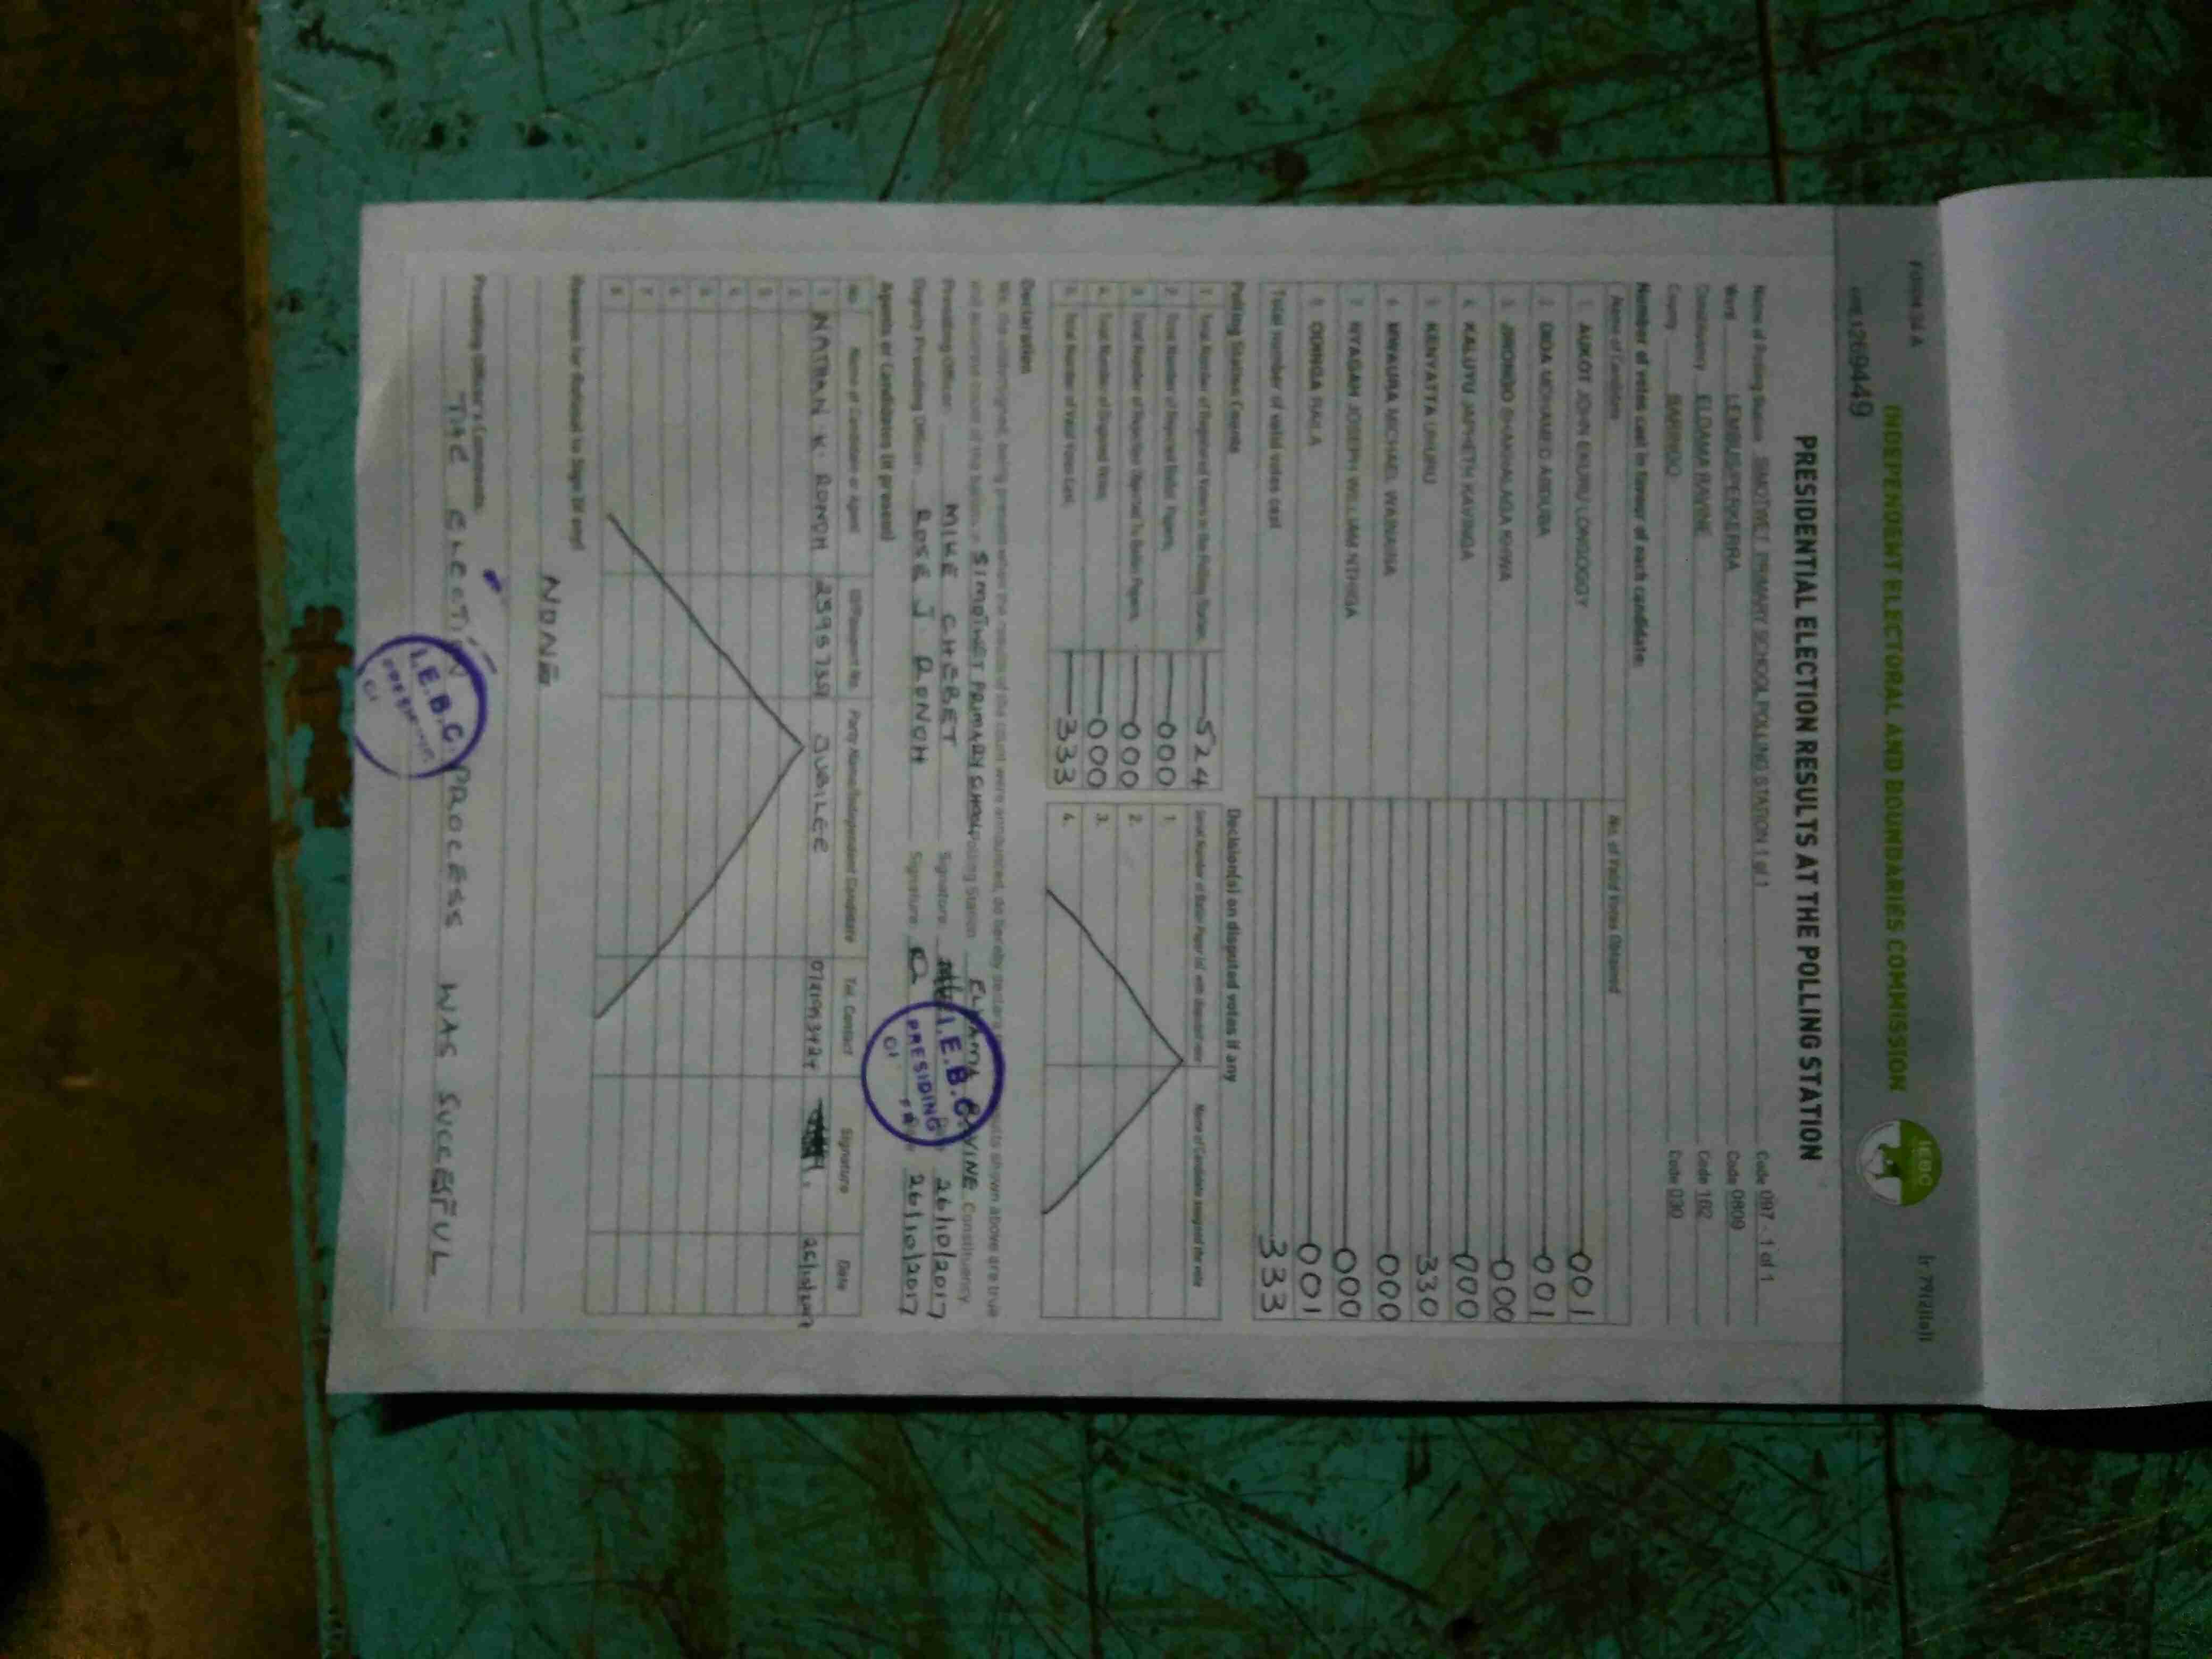 FORM 34 A
INDEPENDENT ELECTORAL AND BOUNDARIES COMMISSION
IEBC
PRESIDENTIAL ELECTION RESULTS AT THE POLLING STATION
Name of Polling Station SIMOTWET PRIMARY SCHOOL POLLING STATION 1 of 1 Code 097 - 1 of 1
Ward LEMBUS/PERKERRA Code 0809
Constituency ELDAMA RAVINE Code 162
County BARINGO Code 030
Number of votes cast in favour of each candidate:
Name of Candidate No. of Valid Votes Obtained
1. AUKOT JOHN EKURU LONGOGGY 001
2. DIDA MOHAMED ABDUBA 001
3. JIRONGO SHAKHALAGA KHWA 000
4. KALUYU JAPHETH KAVINGA 000
5. KENYATTA UHURU 330
6. MWAURA MICHAEL WAINAINA 000
7. NYAGAH JOSEPH WILLIAM NTHIGA 000
8. ODINGA RAILA 001
Total number of valid votes cast 333
Polling Station Counts
1. Total Number of Registered Voters in the Polling Station 524
2. Total Number of Rejected Ballot Papers 000
3. Total Number of Rejection Objected To Ballot Papers 000
4. Total Number of Disputed Votes 000
5. Total Number of Valid Votes Cast 333
Decision(s) on disputed votes if any
1.
2.
3.
4.
Declaration
We, the undersigned, being present when the results of the count were announced, do hereby declare shown above are true
SIMOTWET PRIMARY SCHOOL Polling Station ELDAMA RAVINE Constituency
Presiding Officer MIKE CHEBET Signature 26/10/2017
Deputy Presiding Officer ROSE J RONOH Signature 26/10/2017
I.E.B.C.
PRESIDING
Agents or Candidates (if present)
No. Name of Candidate or Agent ID/Passport No. Party Name/Independent Candidate Tel. Contact Signature Date
1. NATHAN K. RONOH JUBILEE 26/10/2017
2.
3.
4.
5.
6.
7.
8.
Reasons for Refusal to Sign (if any)
NONE
Presiding Officer's Comments:
THE ELECTION PROCESS WAS SUCCESFUL
I.E.B.C.